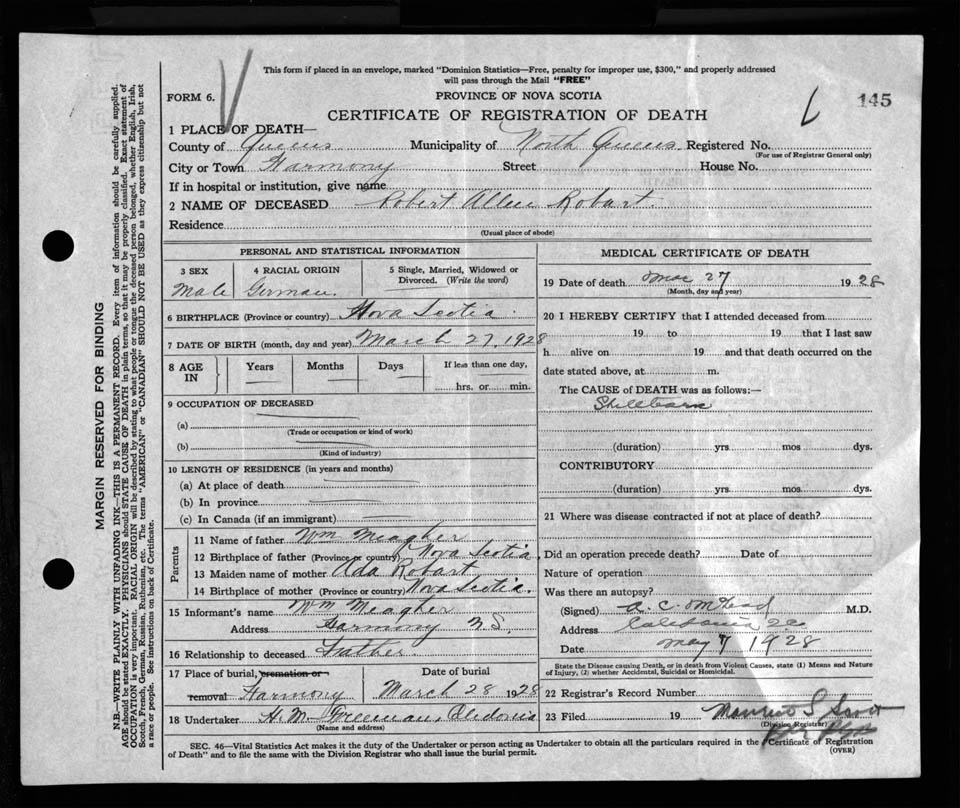 This form if placed in an envelope, marked "Dominion Statistics—Free, penalty for improper use, $300," and properly addressed
will pass through the Mail "FREE"
FORM 6.
PROVINCE OF NOVA SCOTIA
145
CERTIFICATE OF REGISTRATION OF DEATH
1 PLACE OF DEATH—
County of Queens Municipality of North Queens Registered No.
(For use of Registrar General only)
City or Town Harmony Street House No.
If in hospital or institution, give name
2 NAME OF DECEASED Robert Allen Robart.
Residence
(Usual place of abode)
PERSONAL AND STATISTICAL INFORMATION
3 SEX 4 RACIAL ORIGIN 5 Single, Married, Widowed or
Divorced. (Write the word)
Male German.
6 BIRTHPLACE (Province or country) Nova Scotia.
7 DATE OF BIRTH (month, day and year) March 27, 1928
8 AGE IN Years Months Days If less than one day,
hrs. or min.
9 OCCUPATION OF DECEASED
(a)
(Trade or occupation or kind of work)
(b)
(Kind of industry)
10 LENGTH OF RESIDENCE (in years and months)
(a) At place of death
(b) In province
(c) In Canada (if an immigrant)
Parents
11 Name of father Wm Meagher
12 Birthplace of father (Province or country) Nova Scotia.
13 Maiden name of mother Ada Robart
14 Birthplace of mother (Province or country) Nova Scotia.
15 Informant's name Wm Meagher
Address Harmony N.S.
16 Relationship to deceased Father.
17 Place of burial, cremation or Date of burial
removal Harmony March 28 1928
18 Undertaker H. M. Freeman, Caledonia
(Name and address)
MEDICAL CERTIFICATE OF DEATH
19 Date of death Mar 27 1928
(Month, day and year)
20 I HEREBY CERTIFY that I attended deceased from
19 to 19 that I last saw
h alive on 19 and that death occurred on the
date stated above, at m.
The CAUSE of DEATH was as follows:—
Stillborn
(duration) yrs mos dys.
CONTRIBUTORY
(duration) yrs. mos. dys.
21 Where was disease contracted if not at place of death?
Did an operation precede death? Date of
Nature of operation
Was there an autopsy?
(Signed) A. C. M.D.
Address Caledonia
Date May 7 1928
State the Disease causing Death, or in death from Violent Causes, state (1) Means and Nature
of Injury, (2) whether Accidental, Suicidal or Homicidal.
22 Registrar's Record Number
23 Filed 19
(Division Registrar)
SEC. 46—Vital Statistics Act makes it the duty of the Undertaker or person acting as Undertaker to obtain all the particulars required in the Certificate of Registration
of Death" and to file the same with the Division Registrar who shall issue the burial permit.
(OVER)
MARGIN RESERVED FOR BINDING
N.B.—WRITE PLAINLY WITH UNFADING INK—THIS IS A PERMANENT RECORD. Every item of information should be carefully supplied.
AGE should be stated EXACTLY. PHYSICIANS should STATE CAUSE OF DEATH in plain terms, so that it may be properly classified. Exact statement of
OCCUPATION is very important. RACIAL ORIGIN will be described by stating to what people or tongue the deceased person belonged, whether English, Irish,
Scotch, French, German, Russian, Ruthenian, etc. The terms "AMERICAN" or "CANADIAN" SHOULD NOT BE USED as they express citizenship but not
a race or people. See instructions on back of Certificate.